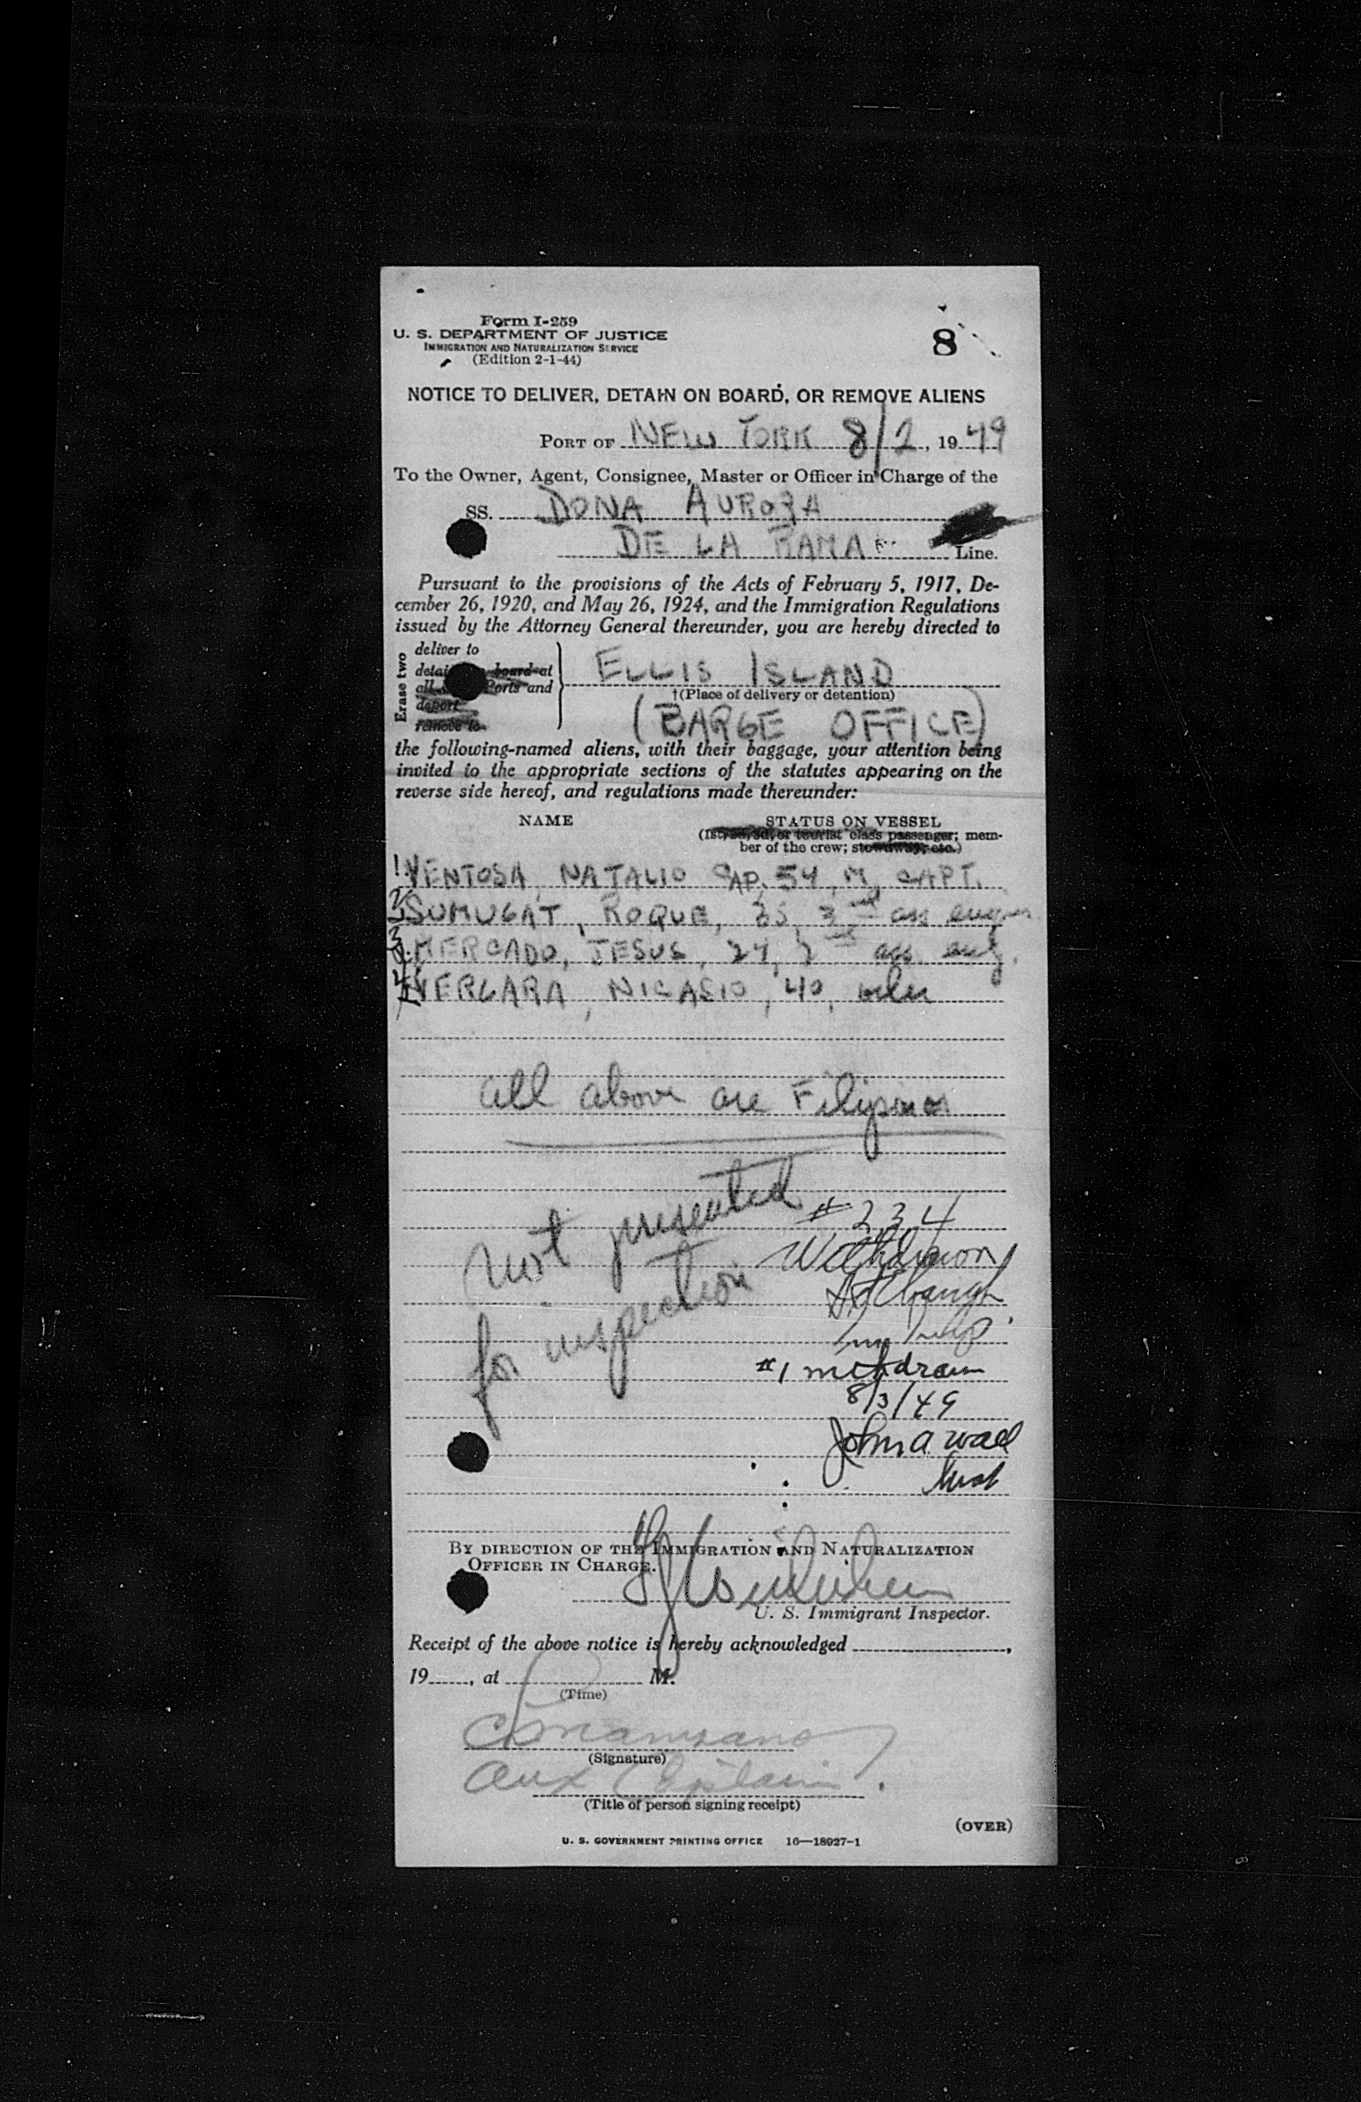 Form I-259
U. S. DEPARTMENT OF JUSTICE
IMMIGRATION AND NATURALIZATION SERVICE
(Edition 2-1-44)
8
NOTICE TO DELIVER, DETAIN ON BOARD, OR REMOVE ALIENS
PORT OF NEW YORK 8/2, 1949
To the Owner, Agent, Consignee, Master or Officer in Charge of the
SS. DONA AURORA
DE LA RAMA Line.
Pursuant to the provisions of the Acts of February 5, 1917, De-
cember 26, 1920, and May 26, 1924, and the Immigration Regulations
issued by the Attorney General thereunder, you are hereby directed to
Erase two
deliver to
board at
Ports and
deport
remove to
ELLIS ISLAND
(Place of delivery or detention)
(BARGE OFFICE)
the following-named aliens, with their baggage, your attention being
invited to the appropriate sections of the statutes appearing on the
reverse side hereof, and regulations made thereunder:
NAME
STATUS ON VESSEL
(1st, 2d, 3d, or tourist class passenger; mem-
ber of the crew; stowaway, etc.)
1. VENTOSA, NATALIO CAP, 54, M, CAPT.
2 SUMUGAT, ROQUE, 35, 3rd ass engin
3 MERCADO, JESUS, 24, 2nd ass eng.
4 VERGARA, NICASIO, 40, oiler
all above are Filipinos
not presented
for inspection
# 2 3 4
Withdrawn
#1 withdrawn
8/3/49
John A Wall
Insp
BY DIRECTION OF THE IMMIGRATION AND NATURALIZATION
OFFICER IN CHARGE.
U. S. Immigrant Inspector.
Receipt of the above notice is hereby acknowledged ,
19 , at M.
(Time)
(Signature)
(Title of person signing receipt)
(OVER)
U. S. GOVERNMENT PRINTING OFFICE 16—18927-1